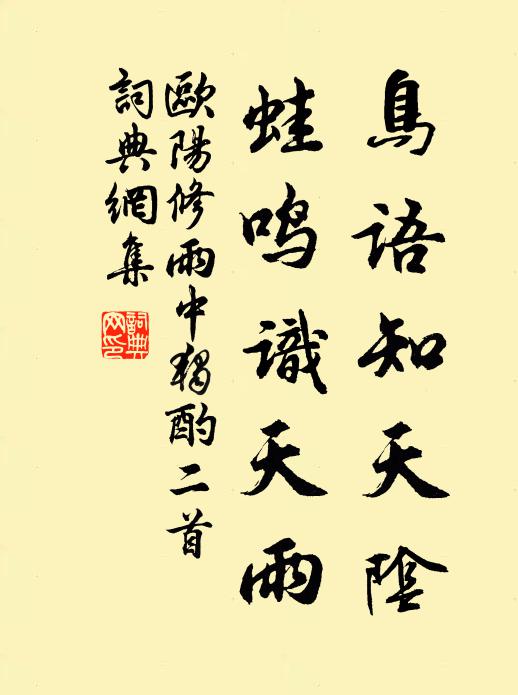 鳥語知天陰
蛙鸣識天雨
歐陽修雨中獨酌二首
詞典網集
詞典网印